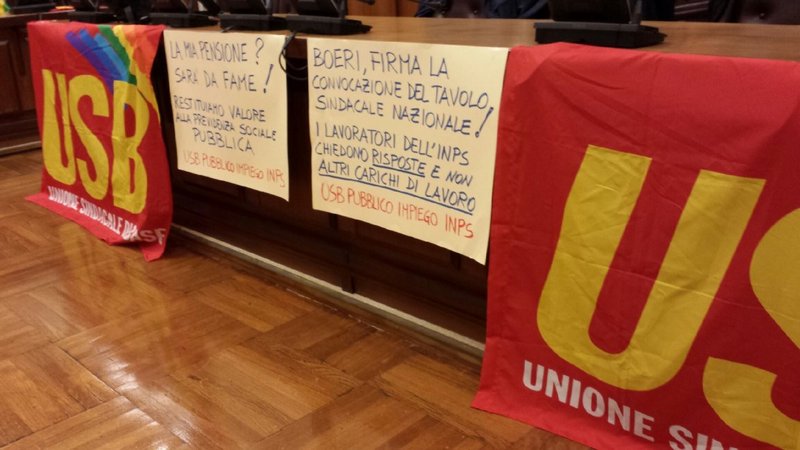 USB
UNIONE SINDACALE DI BASE
LA MIA PENSIONE?
SARÀ DA FAME!
RESTITUIAMO VALORE
ALLA PREVIDENZA SOCIALE
PUBBLICA
USB PUBBLICO IMPIEGO INPS
BOERI, FIRMA LA
CONVOCAZIONE DEL TAVOLO
SINDACALE NAZIONALE!
I LAVORATORI DELL'INPS
CHIEDONO RISPOSTE E NON
ALTRI CARICHI DI LAVORO
USB PUBBLICO IMPIEGO INPS
US
UNIONE SIN